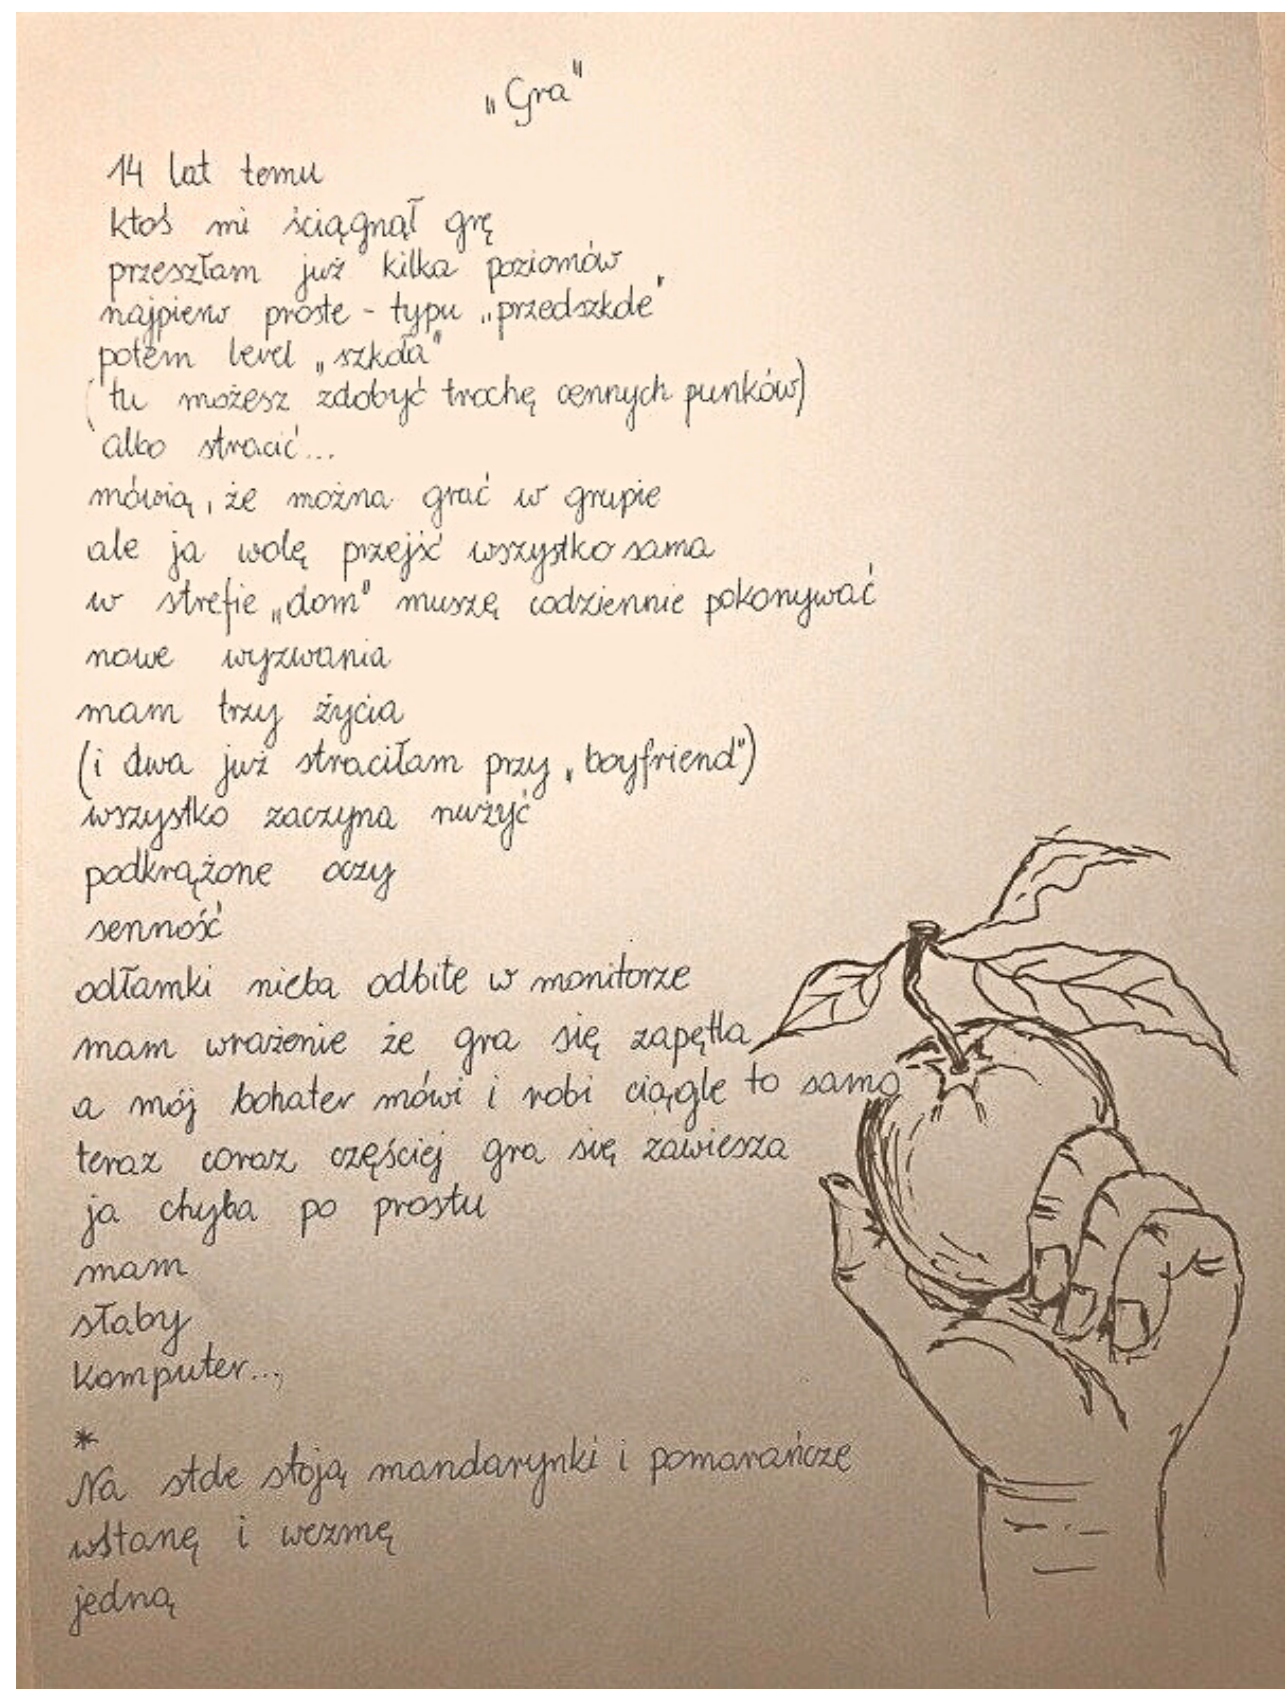 „Gra"
14 lat temu
ktoś mi ściągnął grę
przeszłam już kilka poziomów
najpierw proste - typu „przedszkole"
potem level „szkoła"
(tu możesz zdobyć trochę cennych punków)
albo stracić...
mówią, że można grać w grupie
ale ja wolę przejść wszystko sama
w strefie „dom" muszę codziennie pokonywać
nowe wyzwania
mam trzy życia
(i dwa już straciłam przy „boyfriend")
wszystko zaczyna nużyć
podkrążone oczy
senność
odłamki nieba odbite w monitorze
mam wrażenie że gra się zapętla
a mój bohater mówi i robi ciągle to samo
teraz coraz częściej gra się zawiesza
ja chyba po prostu
mam
słaby
komputer...
*
Na stole stoją mandarynki i pomarańcze
wstanę i wezmę
jedną